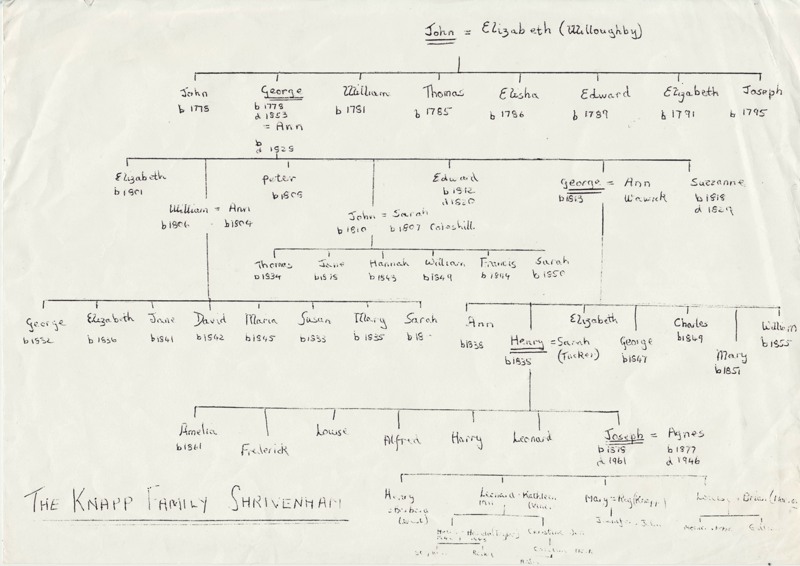 John = Elizabeth (Willoughby)
John George William Thomas Elisha Edward Elizabeth Joseph
b 1775 b 1778 b 1781 b 1785 b 1786 b 1789 b 1791 b 1795
d 1853
= Ann
b
d 1828
Elizabeth Peter Edward George = Ann Suezanne
b 1801 b 1808 b 1812 b 1813 Wawick b 1818
d 1820 d 1829
William = Ann John = Sarah
b 1806 b 1804 b 1810 b 1807 Coleshill
Thomas Jane Hannah William Francis Sarah
b 1834 b 1843 b 1849 b 1844 b 1850
George Elizabeth Jane David Maria Susan Mary Sarah
b 1832 b 1836 b 1841 b 1842 b 1845 b 1833 b 1835 b 18
Ann Henry = Sarah Elizabeth George Charles Mary William
b 1838 b 1835 (Tucker) b 1847 b 1849 b 1851 b 1855
Amelia Frederick Louise Alfred Harry Leonard Joseph = Agnes
b 1861 b 1878 b 1877
d 1961 d 1946
THE KNAPP FAMILY SHRIVENHAM
Henry Leonard = Kathleen Mary = Reg (Knapp)
= Barbara